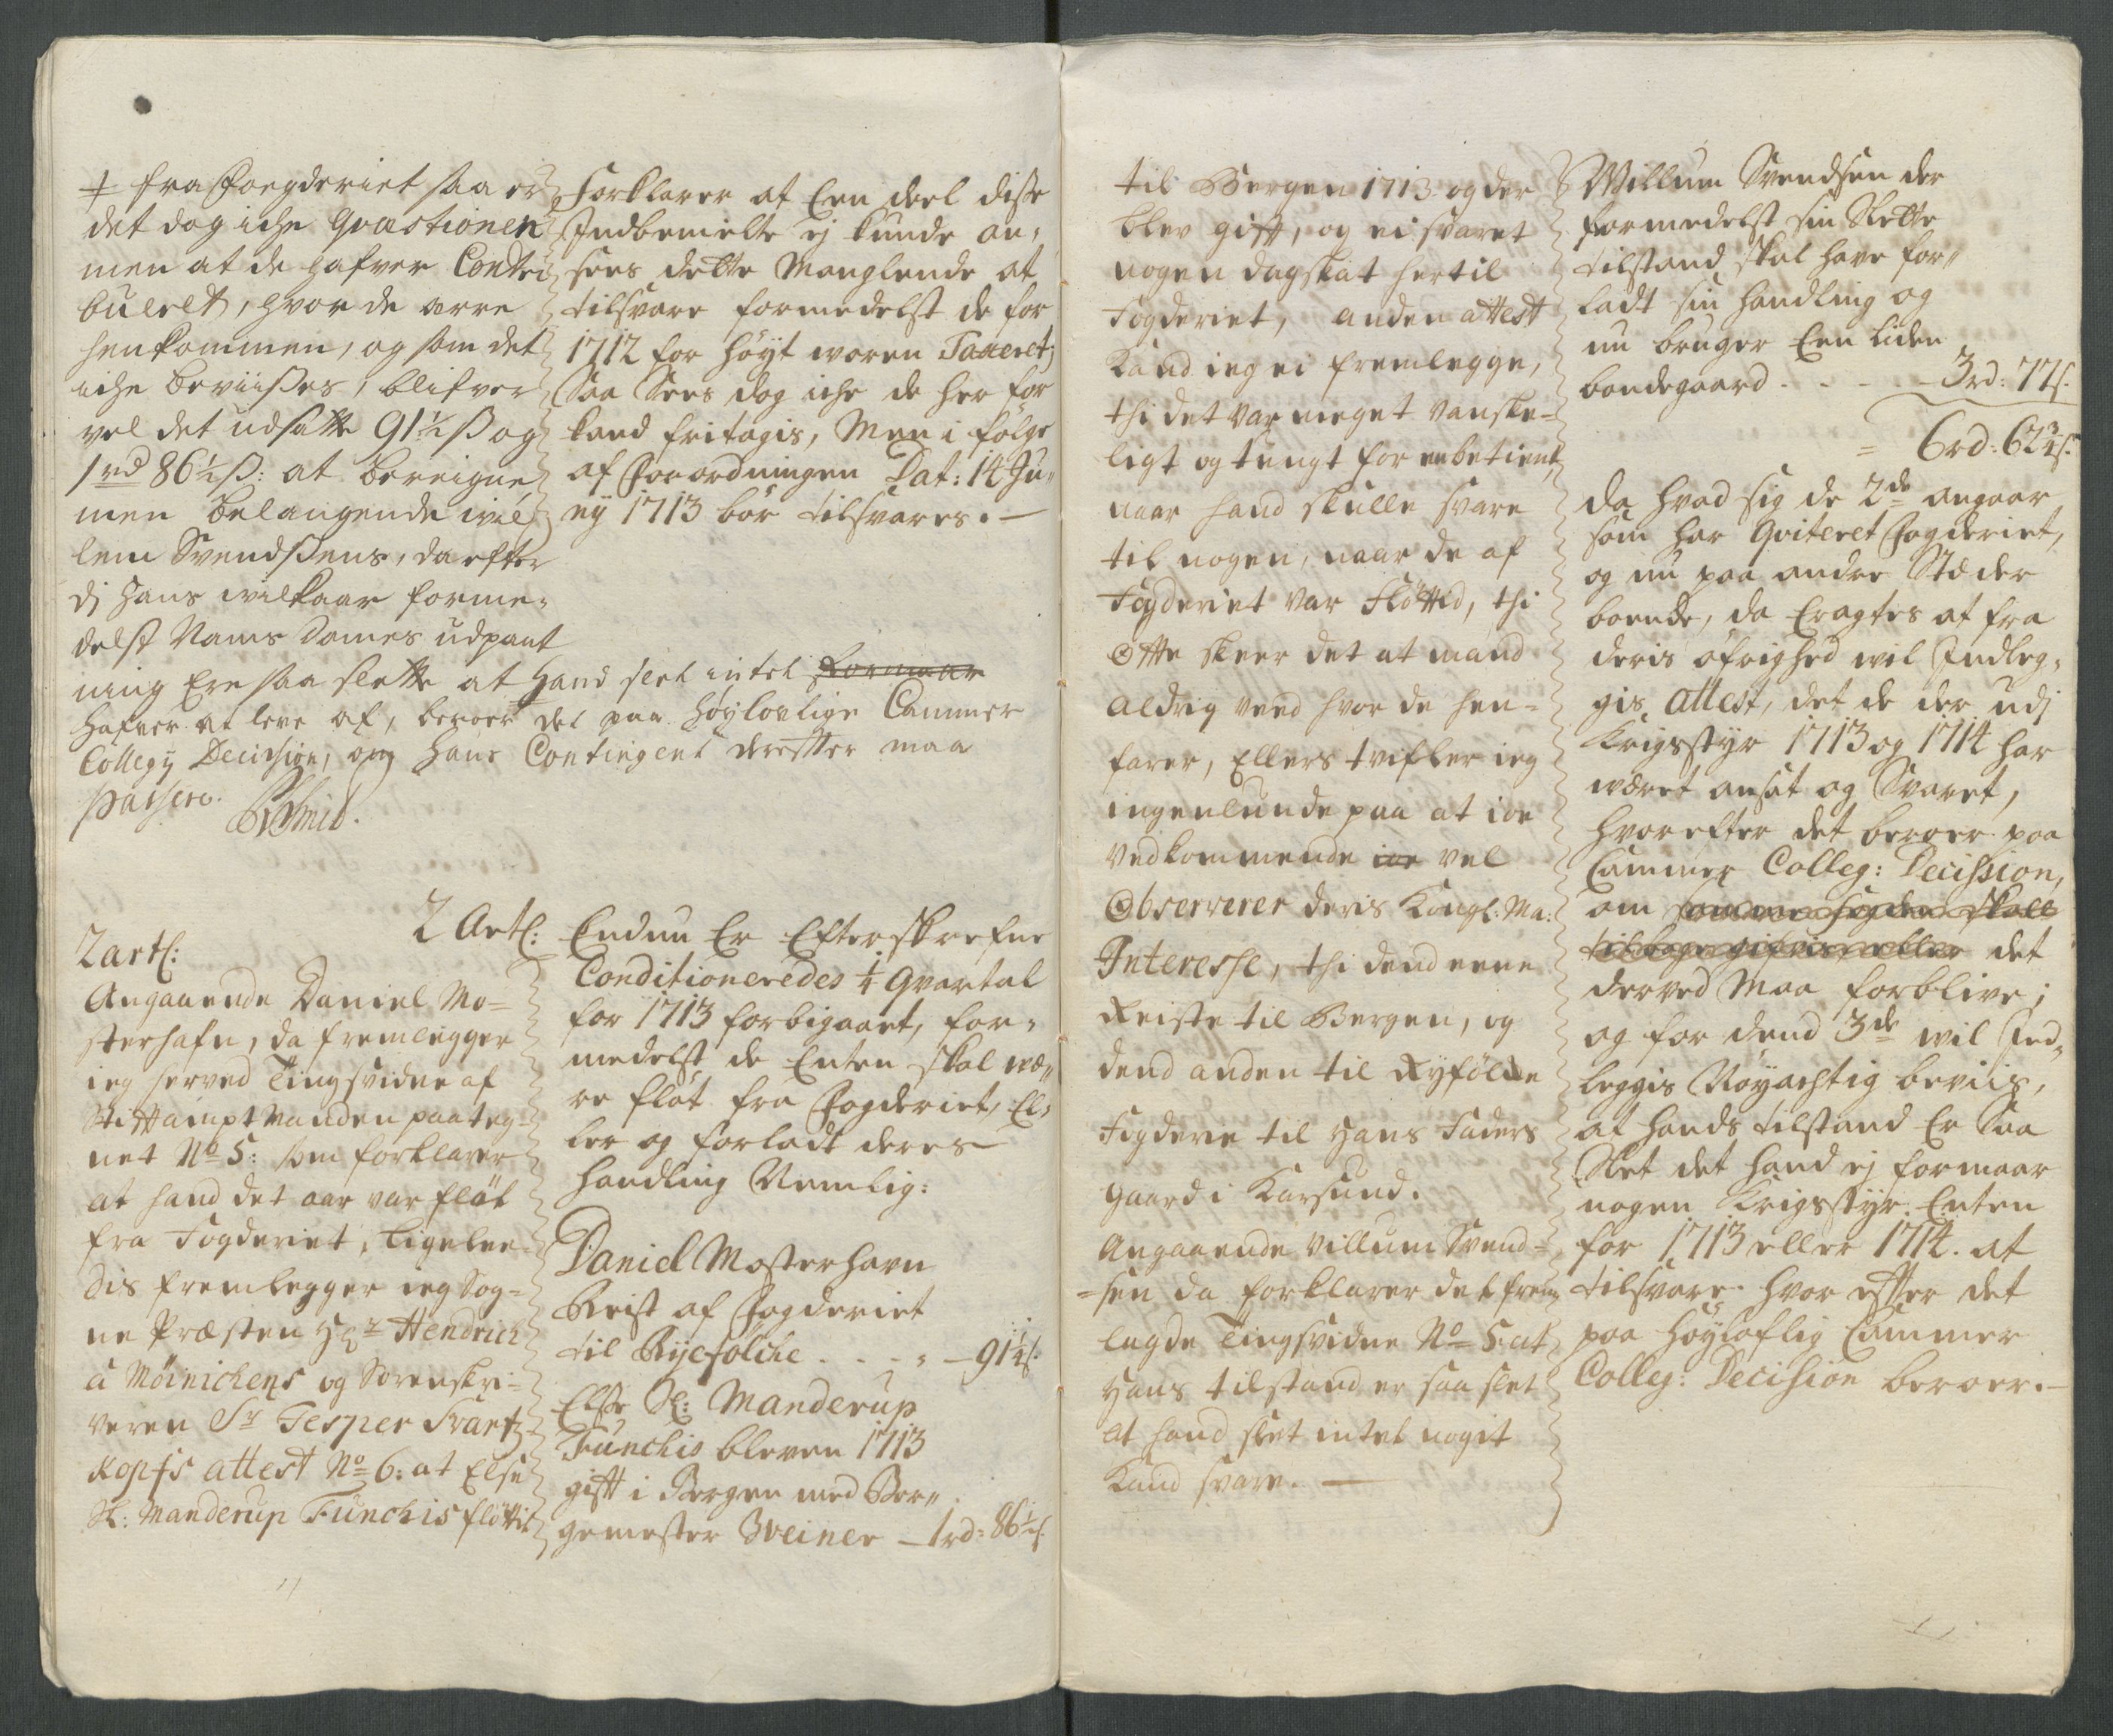 ╪ fra Foegderiet saa er
det dog iche Qvæstionen
men at de hafver Contri
bueret, hvor de ere
henkommen, og som det
iche beviises, blifver
vel det udsatte 91½ ß og
1rd 86½ ß: at bereigne
men belangende wil,
lem Svendßens, da efter
dj hans wilkaar forme-
delst Vams Dames udpant
ning Ere saa slette at hand slet intet formaar
hafver at leve af, beroer det paa høylovlige Cammer
Collegij Decission, og hans Contingent derefter maa
passere.
Forklarer at Een deel disse
Indbemelte ej kunde an-
sees dette Manglende at
tilsvare formedelst de for
1712 for høyt woren Taxeret,
Saa Sees dog iche de her for
kand fritagis, Men i følge
af Forordningen Dat: 14 Ju-
nij 1713 bør tilsvares.—
2 artl:
Angaaende Daniel Mo-
sterhafn, da fremlegger
ieg herved Tingsvidne af
Stiftamptmanden paateg-
net No 5: som forklarer
at hand det aar var fløt
fra Fogderiet, Ligelee-
dis fremlegger ieg Sog-
ne Præsten Hr Hendrich
â Möinichens og Sorenskri-
veren Sr Jesper Svartz-
kopfs attest No 6: at Else
Sl: Manderup Funchis fløttet
2 Artl: Endnu Er Efterskrefne
Conditioneredes ¼ Qvartal
for 1713 forbigaaet, for-
medelst de Enten skal væ-
re fløt fra Fogderiet, El-
ler og forladt deres
Handling Nemlig:
Daniel Mosterhavn
Reist af Fogderiet
til Ryefølche . . . - — 91¼ s:
Else Sl: Manderup
Funchis bleven 1713
gift i Bergen med Bor-
gemester Weiner — 1rd: 86½ s:
til Bergen 1713 og der
blev gift, og ei svaret
nogen dagskat hertil
Fogderiet, anden attest
kand ieg ei fremlegge,
thi det var meget vanske-
ligt og tungt for en betient,
naar hand skulle svare
til nogen, naar de af
Fogderiet var Fløttid, thi
Otte skeer det at mand
aldrig veed hvor de hen-
farer, Ellers tvifler ieg
ingenlunde paa at ioe
vedkommende ioe vel
Observerer deris Kongl: Ma:
Interesse, thi dend eene
Reiste til Bergen, og
dend anden til Ryfølke
Fogderie til hans Faders
gaard i Karsund.
Angaaende Villum Svend-
-sen da forklarer det frem
lagde Tingsvidne No 5: at
hans tilstand er saa slet
at hand slet intet nogit
kand svare. —
Willum Svendsen der
formedelst sin Slette
tilstand skal have for-
ladt sin handling og
nu bruger Een liden
bondegaard . - - - - 3rd: 77 s:
= 6rd: 62¾ s:
Da hvad sig de 2de angaar
som har Qviteret Fogderiet,
og nu paa andre Stæder
boende, da Eragtes at fra
deris øfrighed wil Indleg-
gis attest, det de der udj
Krigsstyr 1713 og 1714 har
wæret ansat og Svaret,
hvorefter det beroer paa
Cammer Colleg: Decission,
om
det
derved Maa forblive;
og for dend 3de wil Ind-
leggis Nøyachtig beviis,
at hands tilstand Er Saa
Slet det hand ej formaar
nogen Krigsstyr Enten
for 1713 eller 1714. at
tilsvare hvor efter det
paa høyloflig Cammer
Colleg: Decission beroer.—